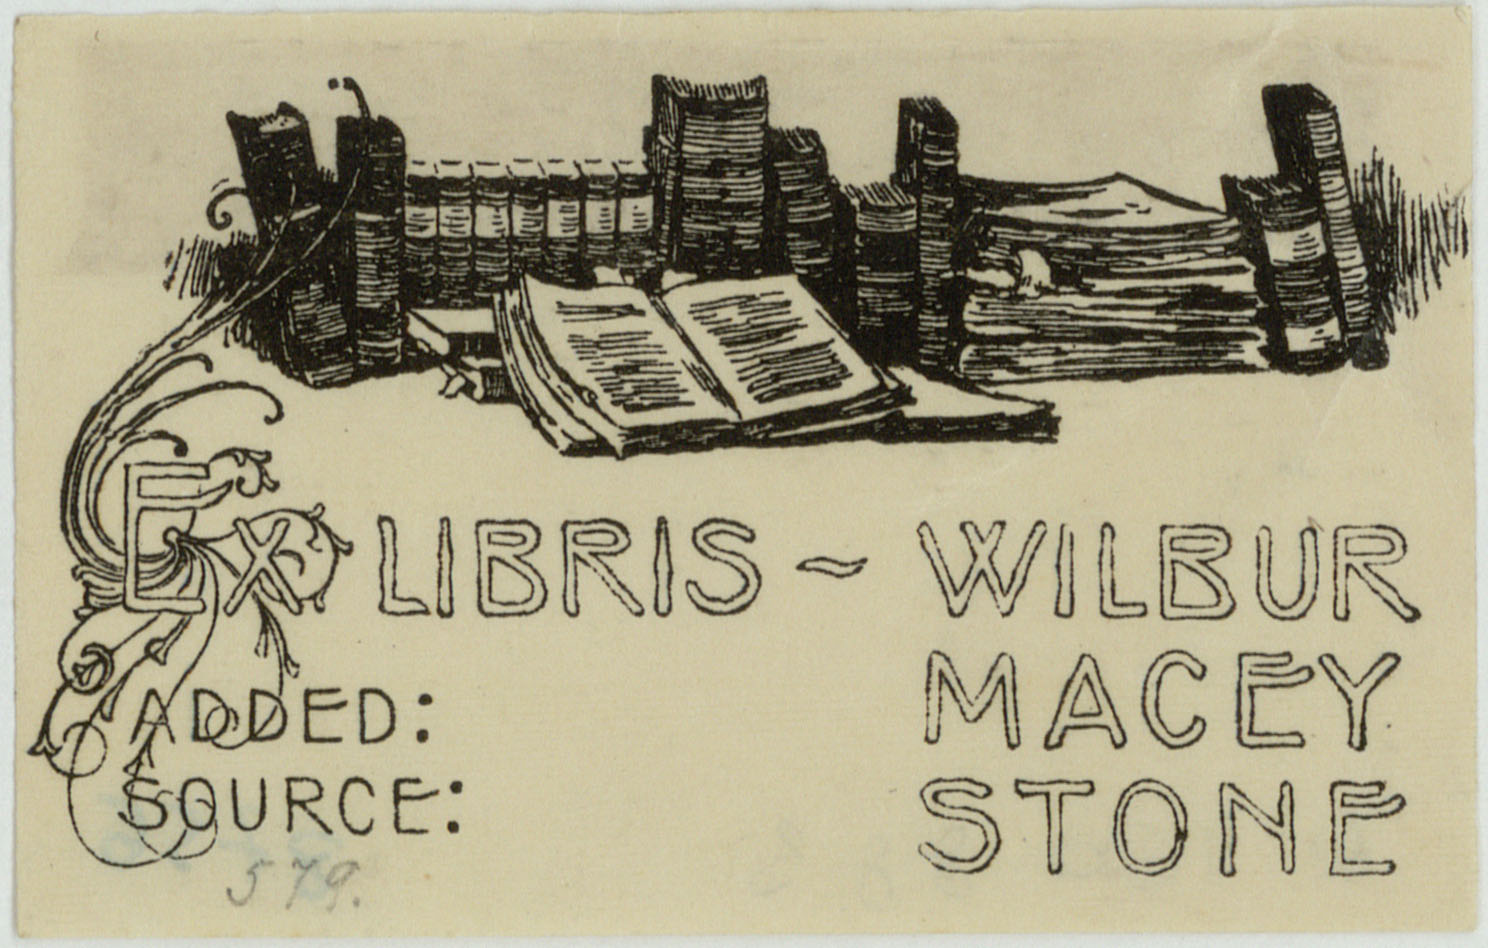 EX LIBRIS ~ WILBUR
MACEY
STONE
ADDED:
SOURCE:
579.